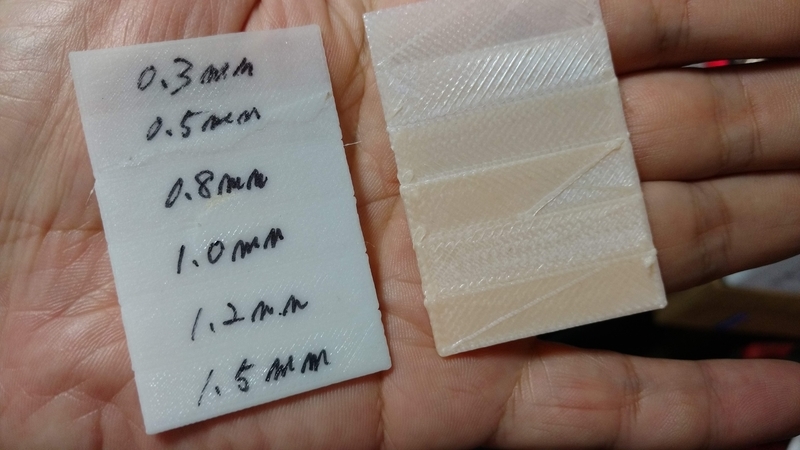 0.3mm
0.5mm
0.8mm
1.0mm
1.2mm
1.5mm